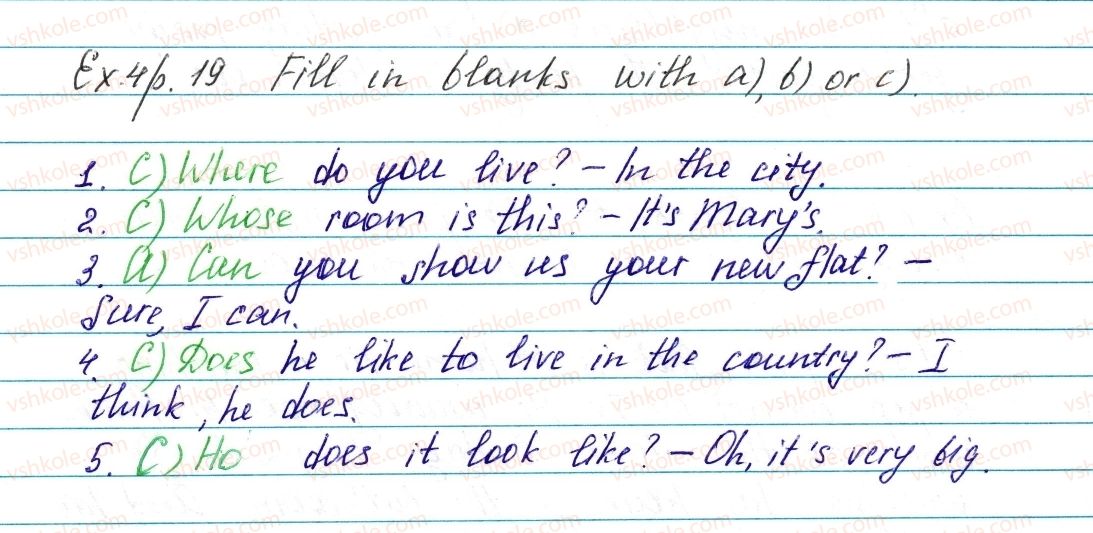 Ex.4/p.19 Fill in blanks with a), b) or c).
1. C) Where do you live? – In the city.
2. C) Whose room is this? – It's Mary's.
3. a) Can you show us your new flat? –
Sure, I can.
4. C) Does he like to live in the country? – I
think, he does.
5. C) Ho does it look like? – Oh, it's very big.
vshkole.com